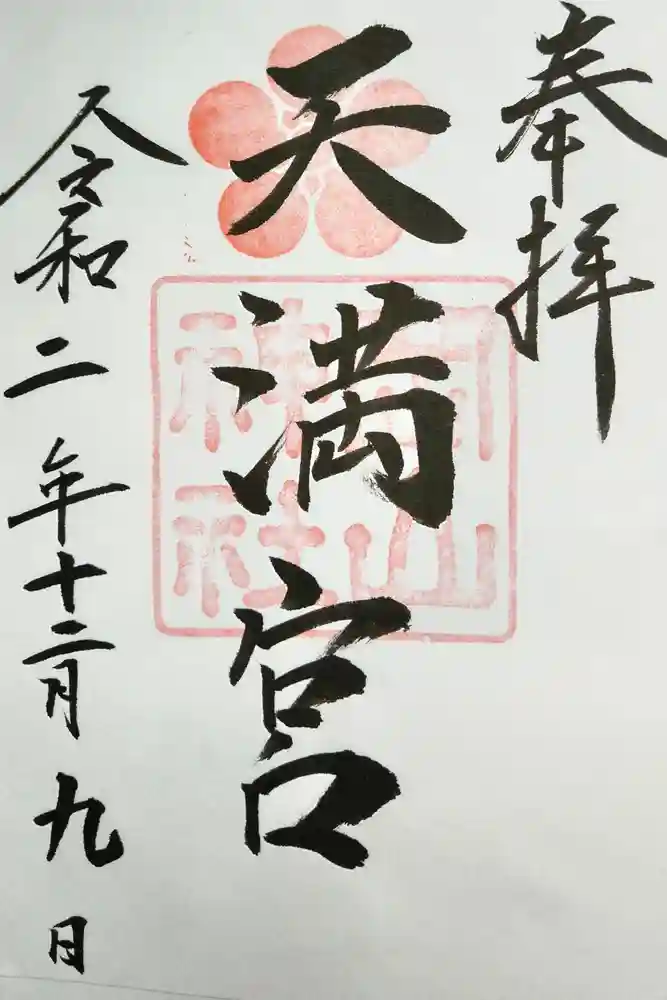 奉拝
天満宮
令和二年十二月九日